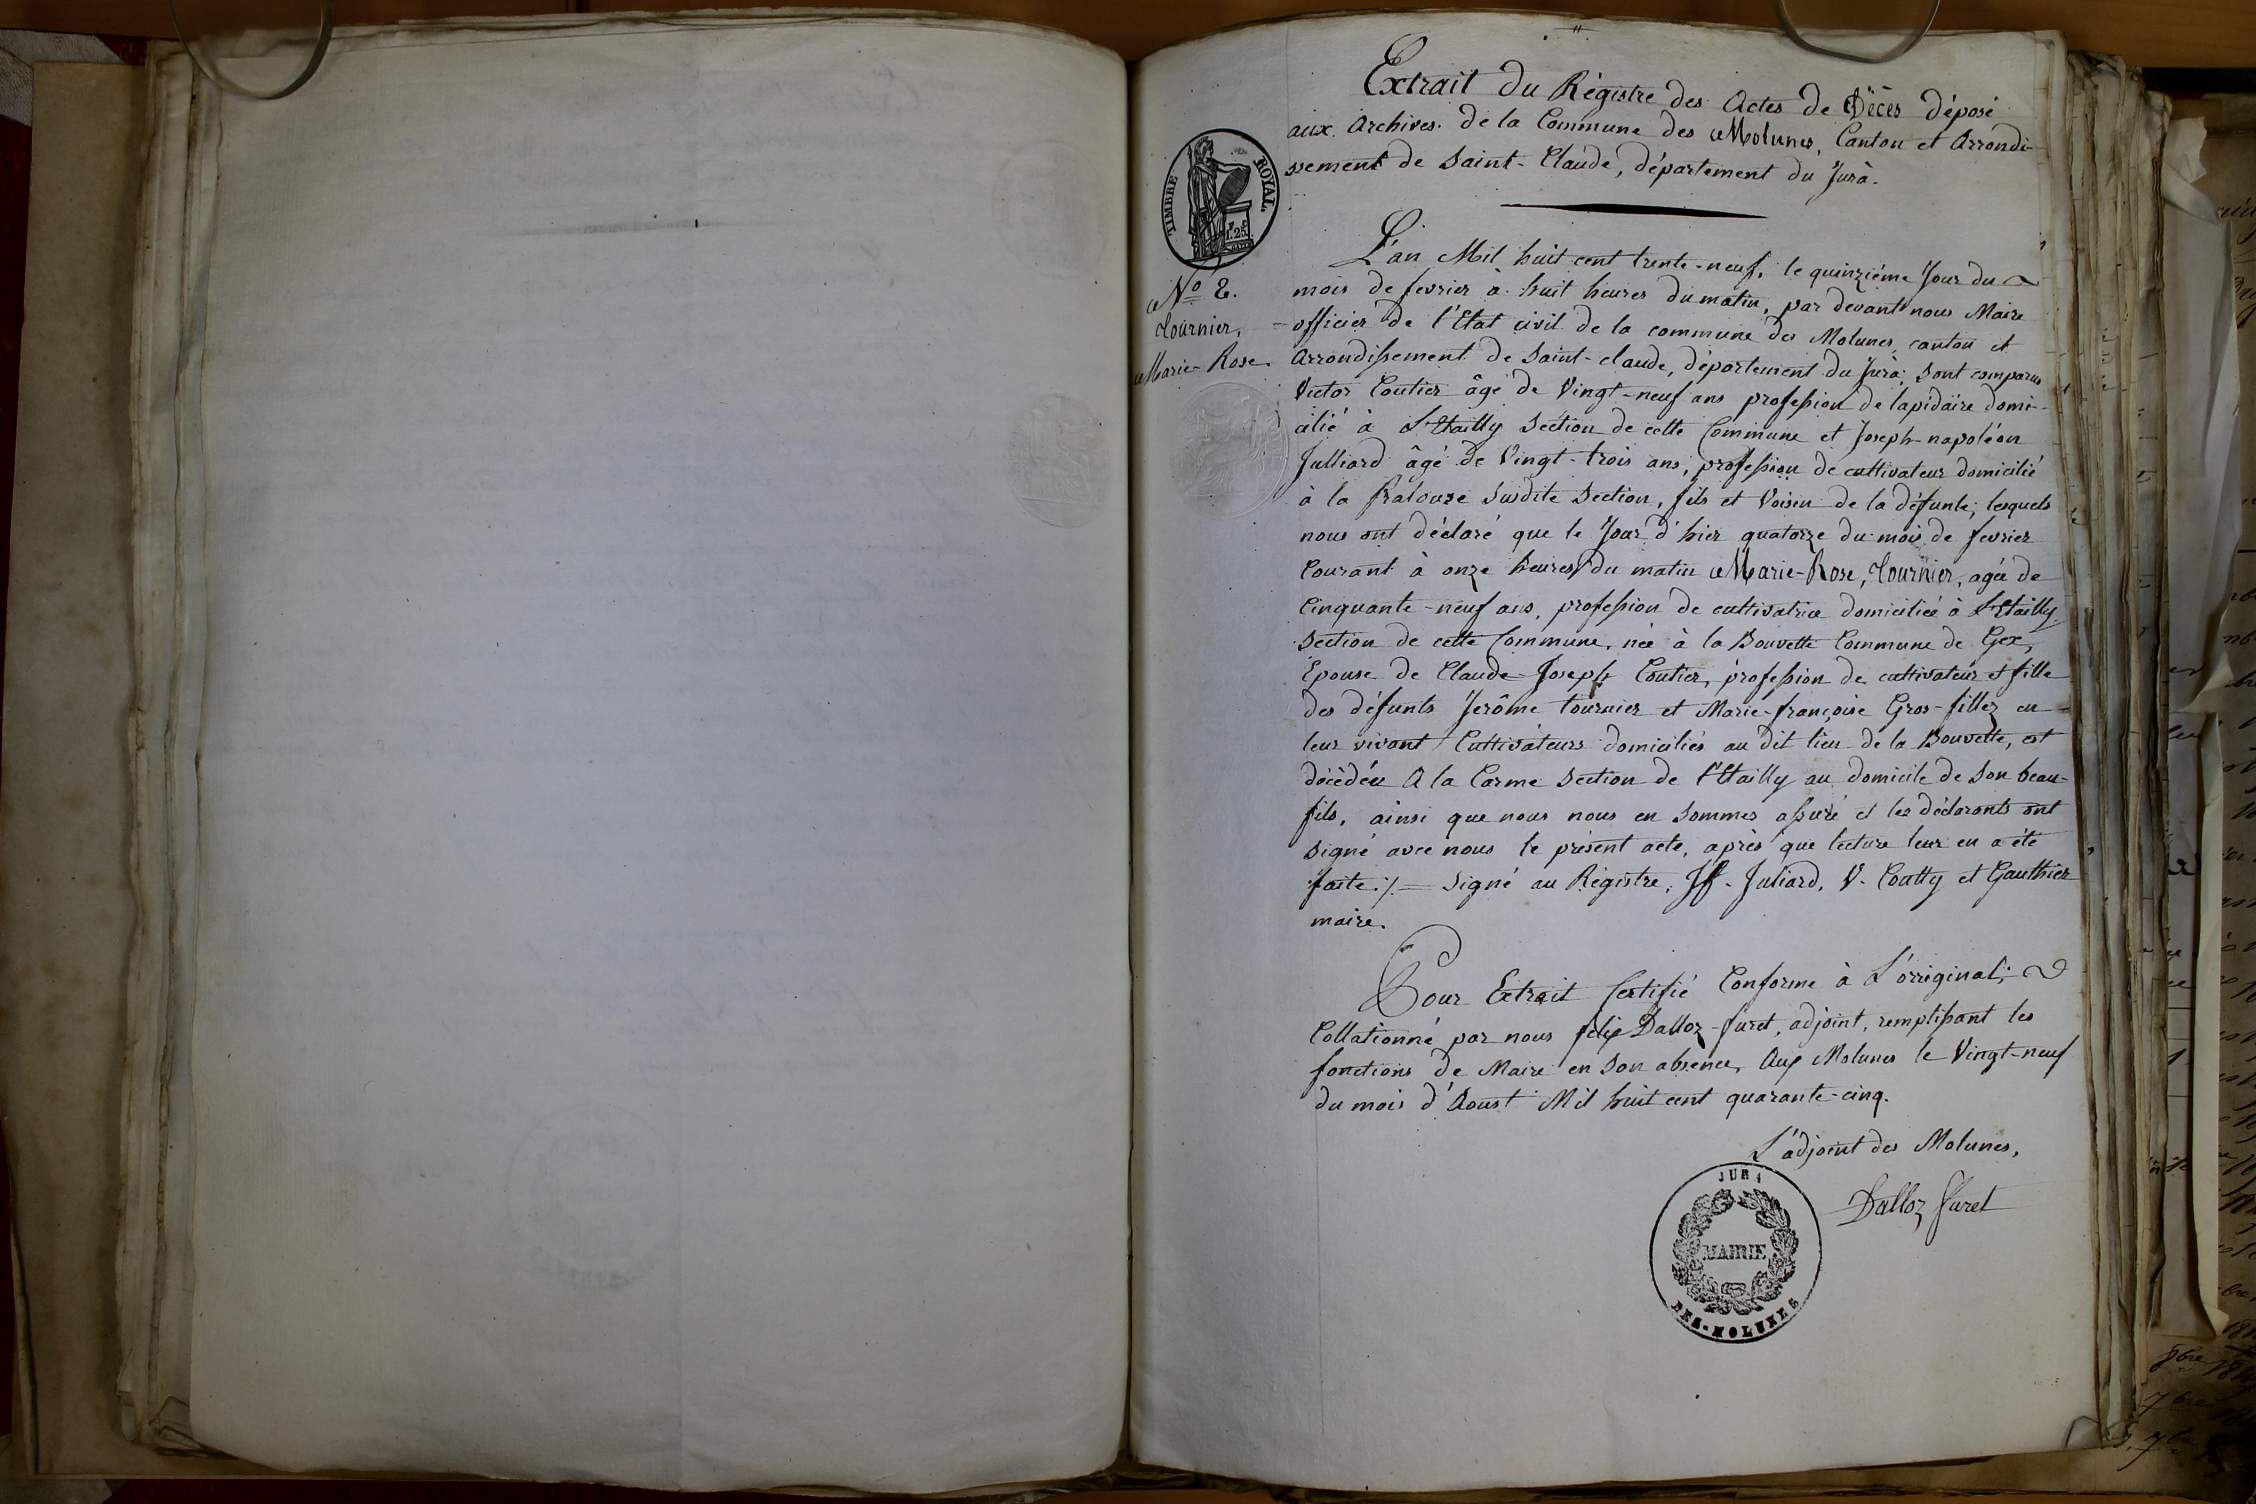 Extrait du Régistre des Actes de Décès déposé
aux Archives de la Commune des Molunes, Canton et Arrondi-
ssement de Saint-Claude, département du Jura.
TIMBRE ROYAL.
1.25
L'an Mil huit cent trente-neuf, le quinziéme Jour du
mois de fevrier à huit heures du matin, par devant nous Maire
officier de l'Etat civil de la commune des Molunes, canton et
Arrondissement de Saint-claude, département du Jura; sont comparus
Victor Coutier âgé de Vingt-neuf ans profession de lapidaire domi-
cilié à L'Etailly Section de cette Commune et Joseph-napoléon
Julliard âgé de Vingt-trois ans, profession de cultivateur domicilié
à la fralouze Susdite Section, fils et Voisin de la défunte; lesquels
nous ont déclaré que le Jour d'hier quatorze du mois de fevrier
Courant à onze heures du matin Marie-Rose, Tournier, agée de
Cinquante-neuf ans, profession de cultivatrice domiciliée à L'Etailly
Section de cette Commune, née à la Bouvette Commune de Gex,
Epouse de Claude-Joseph Coutier, profession de cultivateur et fille
des défunts Jerôme Tournier et Marie-françoise Gros-fillez en
leur vivant Cultivateurs domiciliés au dit lieu de la Bouvette, est
décèdée A la Carme Section de l'Etailly au domicile de Son beau-
fils, ainsi que nous nous en Sommes assuré et les déclarants ont
Signé avec nous le présent acte, après que lecture leur en a été
faite ./. = Signé au Régistre, Jh. Juliard, V. Coutty et Gauthier
maire.
N° 2.
Tournier,
Marie-Rose.
Pour Extrait Certifié Conforme à L'orriginal;
Collationné par nous felix Dalloz-furet, adjoint, remplissant les
fonctions de Maire en Son absence, Aux Molunes le Vingt-neuf
du mois d'Aoust Mil huit cent quarante-cinq.
L'adjoint des Molunes,
Dalloz Furet
JURA
MAIRIE
DES-MOLUNES